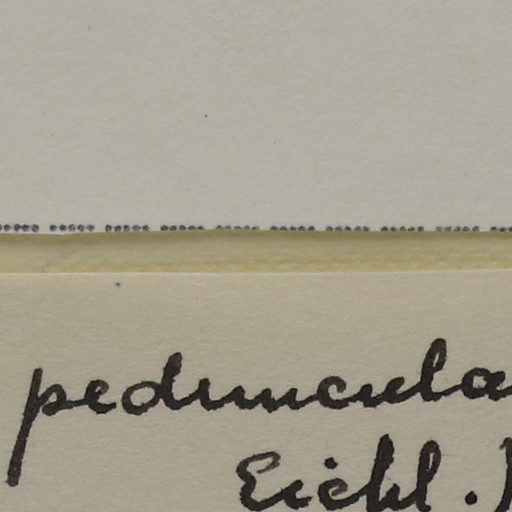 peduncula
Eichl.)